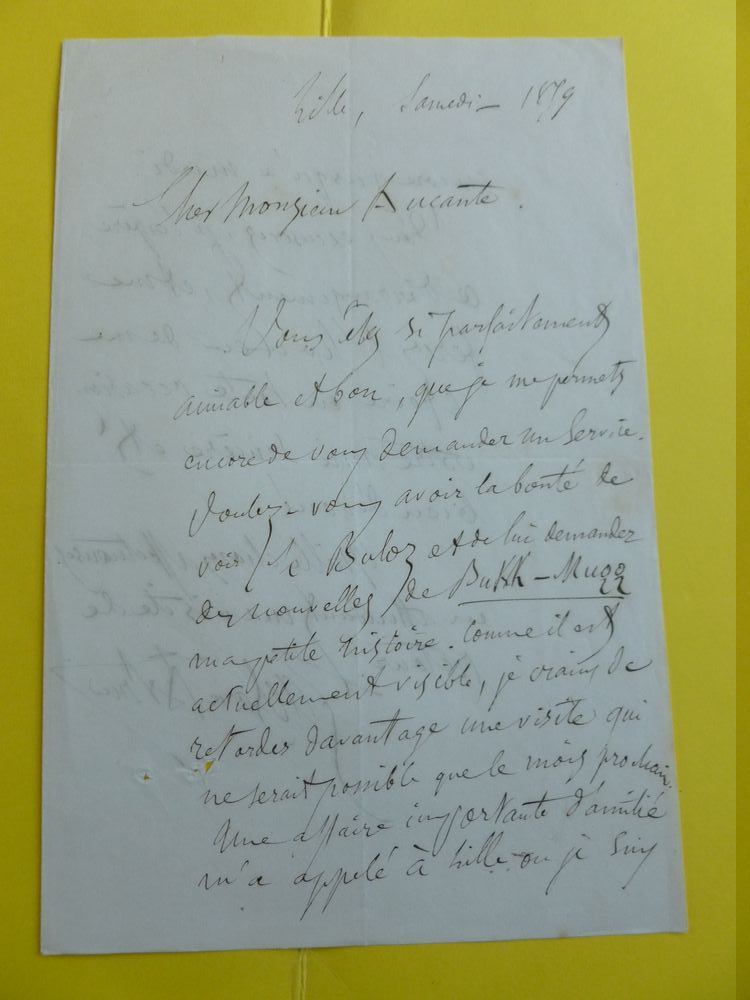 Lille, Samedi – 1879
Cher Monsieur Ducante.
Vous êtes si parfaitement
aimable et bon, que je me permets
encore de vous demander un service.
Voulez-vous avoir la bonté de
voir Buloz et de lui demander
des nouvelles de Bukk-Mugg
ma petite histoire. Comme il est
actuellement visible, je crains de
retarder davantage une visite qui
ne serait possible que le mois prochain.
Une affaire importante d'amitié
m'a appelé à Lille où je suis